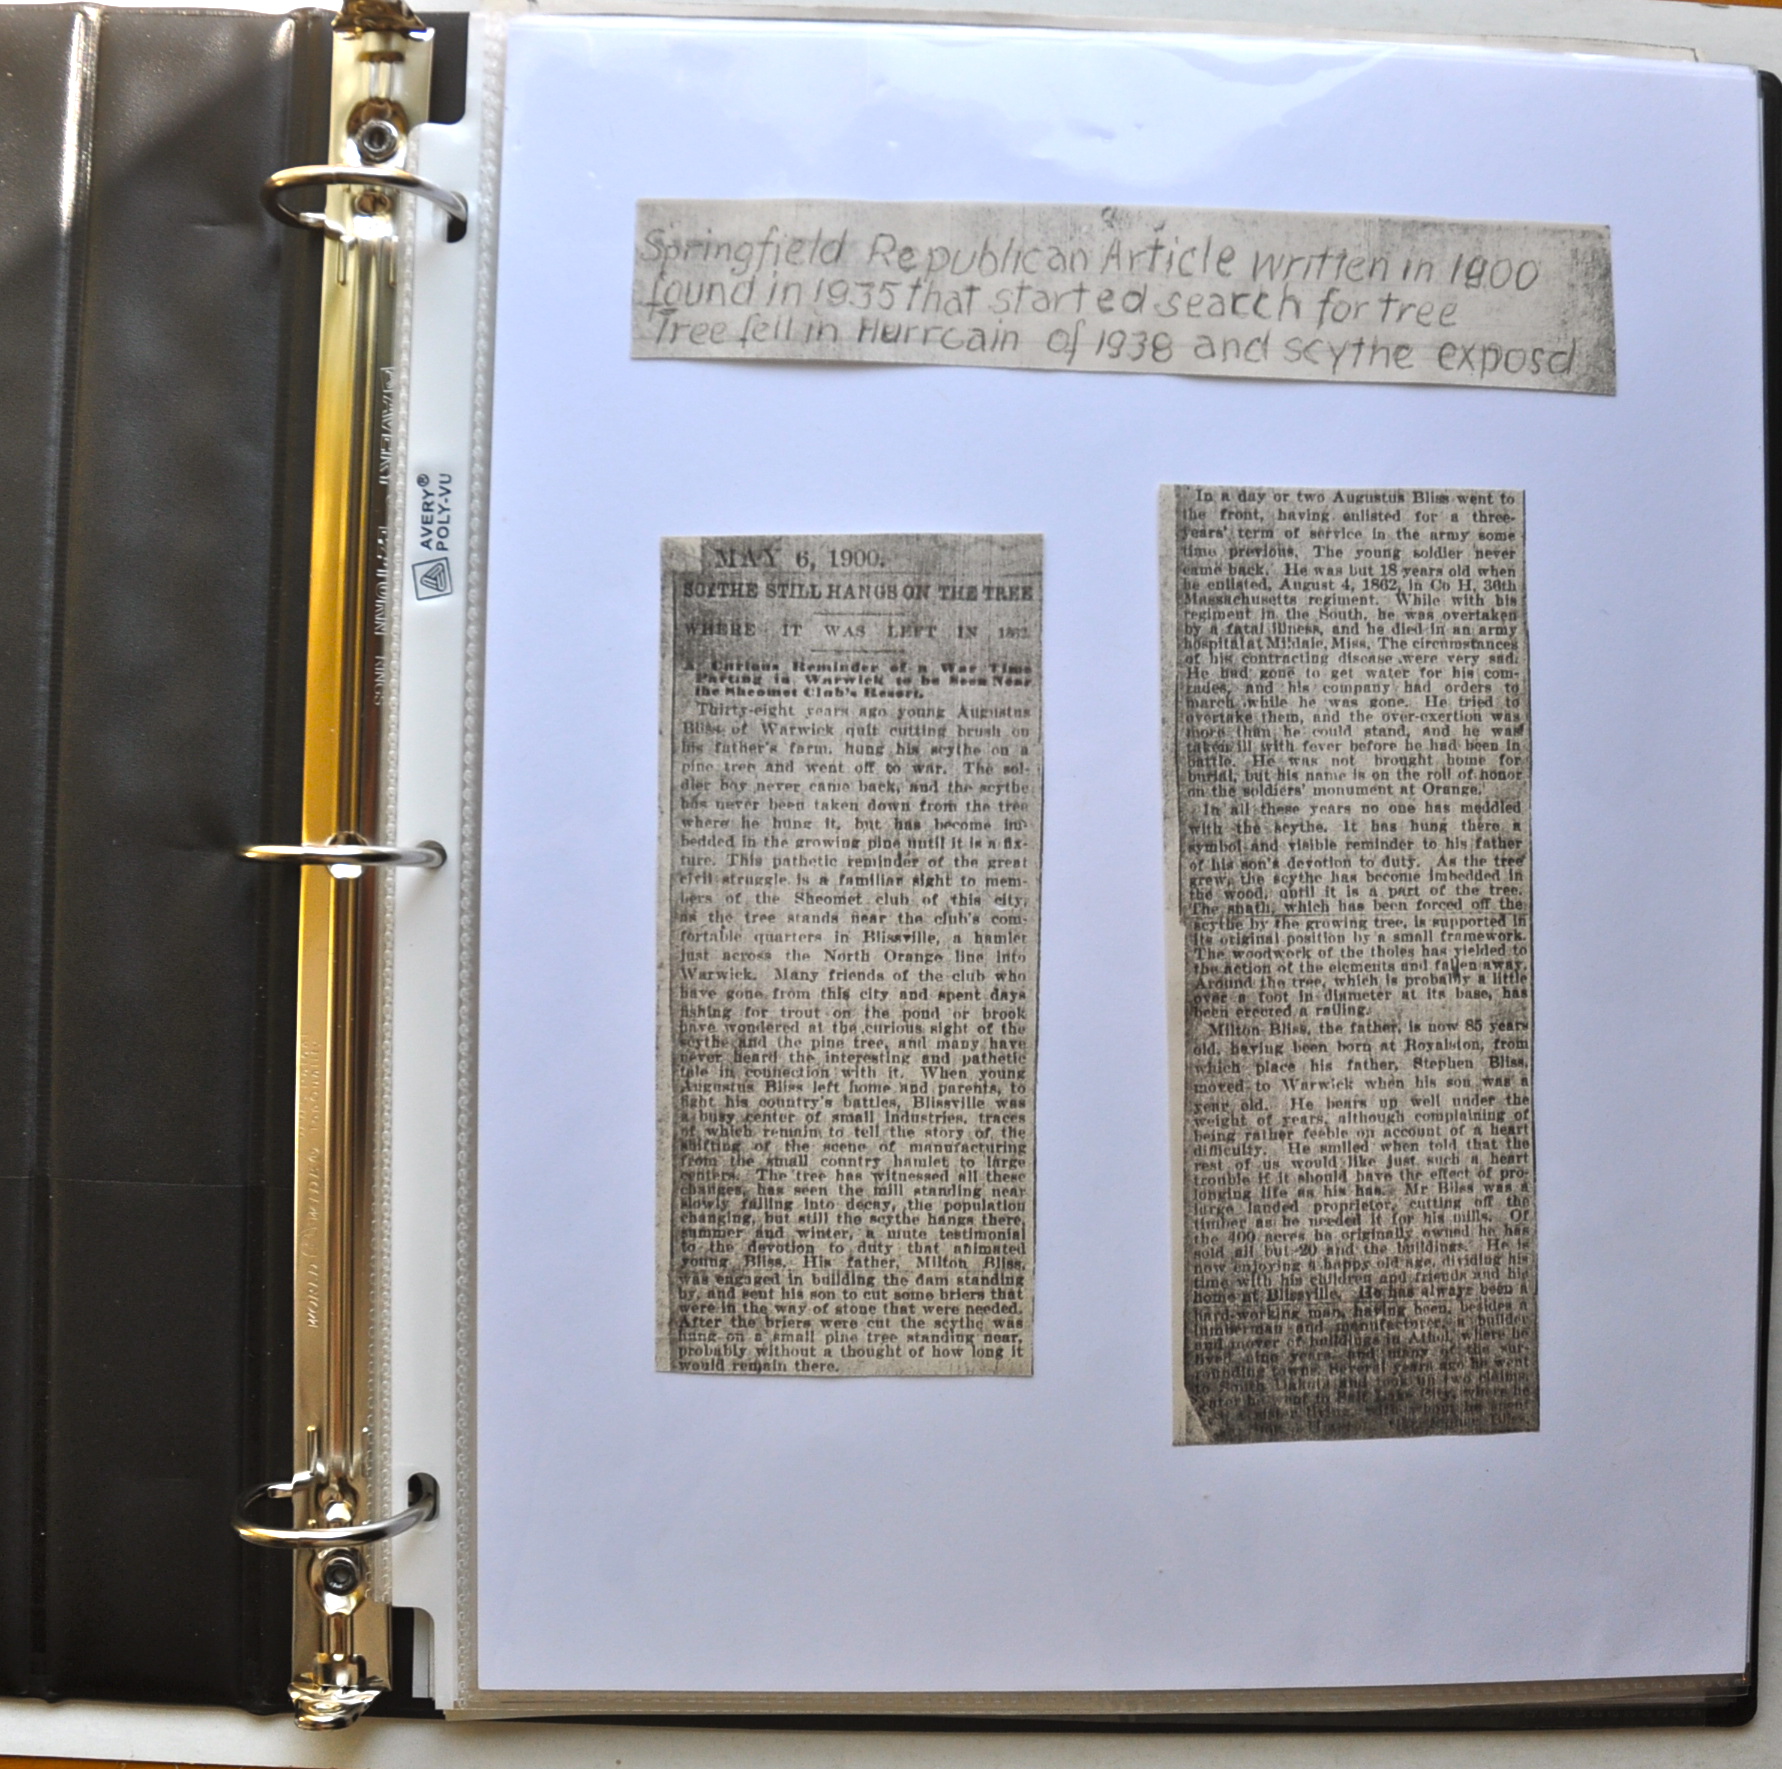 Springfield Republican Article written in 1900
found in 1935 that started search for tree
Tree fell in Hurrcain of 1938 and scythe exposd
AVERY®
POLY-VU
MAY 6, 1900.
SCYTHE STILL HANGS ON THE TREE
WHERE IT WAS LEFT IN 1862
A Curious Reminder of a War Time
Parting in Warwick to be Seen Near
the Sheomet Club's Resort.
Thirty-eight years ago young Augustus
Bliss of Warwick quit cutting brush on
his father's farm, hung his scythe on a
pine tree and went off to war. The sol-
dier boy never came back, and the scythe
has never been taken down from the tree
where he hung it, but has become im-
bedded in the growing pine until it is a fix-
ture. This pathetic reminder of the great
civil struggle is a familiar sight to mem-
bers of the Sheomet club of this city,
as the tree stands near the club's com-
fortable quarters in Blissville, a hamlet
just across the North Orange line into
Warwick. Many friends of the club who
have gone from this city and spent days
fishing for trout on the pond or brook
have wondered at the curious sight of the
scythe and the pine tree, and many have
never heard the interesting and pathetic
tale in connection with it. When young
Augustus Bliss left home and parents, to
fight his country's battles, Blissville was
a busy center of small industries, traces
of which remain to tell the story of the
shifting of the scene of manufacturing
from the small country hamlet to large
centers. The tree has witnessed all these
changes, has seen the mill standing near
slowly falling into decay, the population
changing, but still the scythe hangs there,
summer and winter, a mute testimonial
to the devotion to duty that animated
young Bliss. His father, Milton Bliss,
was engaged in building the dam standing
by, and sent his son to cut some briers that
were in the way of stone that were needed.
After the briers were cut the scythe was
hung on a small pine tree standing near,
probably without a thought of how long it
would remain there.
In a day or two Augustus Bliss went to
the front, having enlisted for a three-
years' term of service in the army some
time previous. The young soldier never
came back. He was but 18 years old when
he enlisted, August 4, 1862, in Co H, 36th
Massachusetts regiment. While with his
regiment in the South, he was overtaken
by a fatal illness, and he died in an army
hospital at Mildale, Miss. The circumstances
of his contracting disease were very sad.
He had gone to get water for his com-
rades, and his company had orders to
march while he was gone. He tried to
overtake them, and the over-exertion was
more than he could stand, and he was
taken ill with fever before he had been in
battle. He was not brought home for
burial, but his name is on the roll of honor
on the soldiers' monument at Orange.
In all these years no one has meddled
with the scythe. It has hung there a
symbol and visible reminder to his father
of his son's devotion to duty. As the tree
grew, the scythe has become imbedded in
the wood, until it is a part of the tree.
The snath, which has been forced off the
scythe by the growing tree, is supported in
its original position by a small framework.
The woodwork of the tholes has yielded to
the action of the elements and fallen away.
Around the tree, which is probably a little
over a foot in diameter at its base, has
been erected a railing.
Milton Bliss, the father, is now 85 years
old, having been born at Royalston, from
which place his father, Stephen Bliss,
moved to Warwick when his son was a
year old. He bears up well under the
weight of years, although complaining of
being rather feeble on account of a heart
difficulty. He smiled when told that the
rest of us would like just such a heart
trouble if it should have the effect of pro-
longing life as his has. Mr Bliss was a
large landed proprietor, cutting off the
timber as he needed it for his mills. Of
the 400 acres he originally owned he has
sold all but 20 and the buildings. He is
now enjoying a happy old age, dividing his
time with his children and friends and his
home at Blissville. He has always been a
hard-working man, having been, besides a
lumberman and manufacturer, a builder
and mover of buildings in Athol, where he
lived nine years, and many of the sur-
rounding towns. Several years ago he went
to South Dakota and took up two claims.
Later he went to Salt Lake City, where he
sister living, with whom he spent